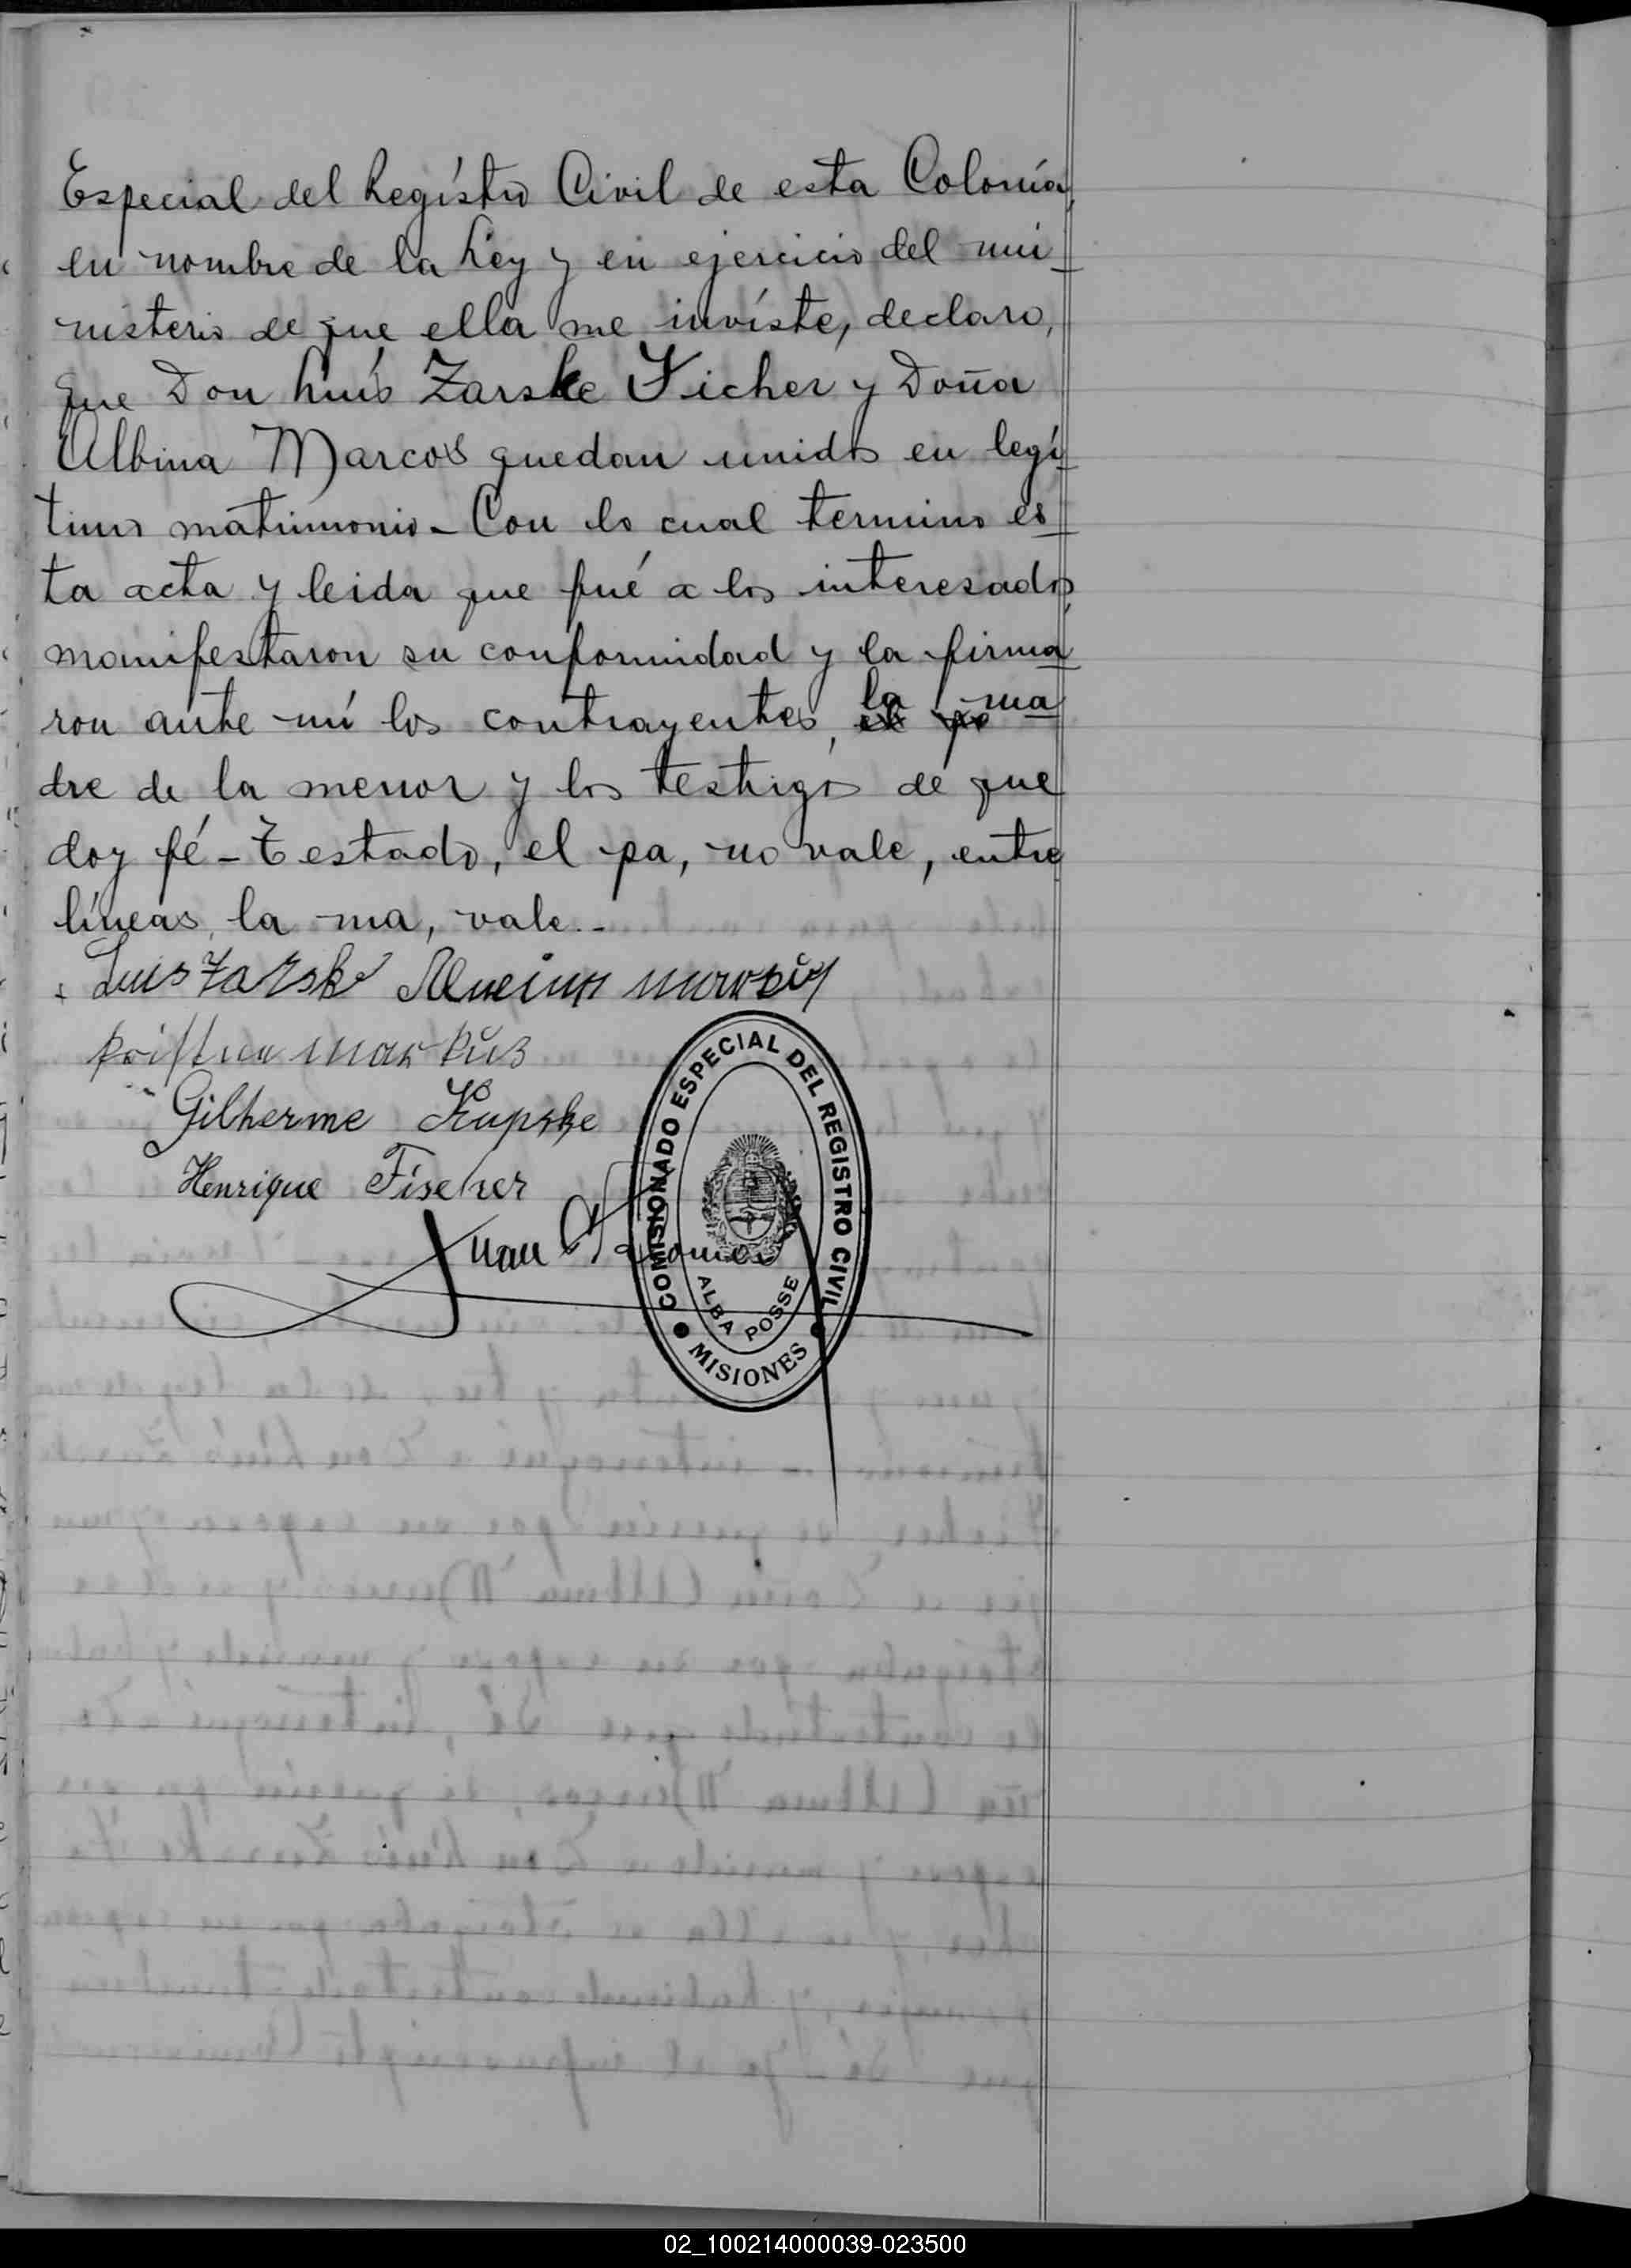 Especial del Registro Civil de esta Colonia,
en nombre de la Ley y en ejercicio del mi-
nisterio de que ella me inviste, declaro,
que Don Luís Zarske Ficher y Doña
Albina Marcos quedan unidos en legí-
timo matrimonio - Con lo cual termino es-
ta acta y leida que fué a los interesados,
manifestaron su conformidad y la firma-
la ma-
ron ante mí los contrayentes, el pa
dre de la menor y los testigos de que
doy fé - Testado, el pa, no vale, entre
líneas, la ma, vale.-
Luis Zarske
Markus
Gilherme Kupske
Henrique Fischer
Juan
COMISIONADO ESPECIAL DEL REGISTRO CIVIL
ALBA POSSE
MISIONES
02_100214000039-023500